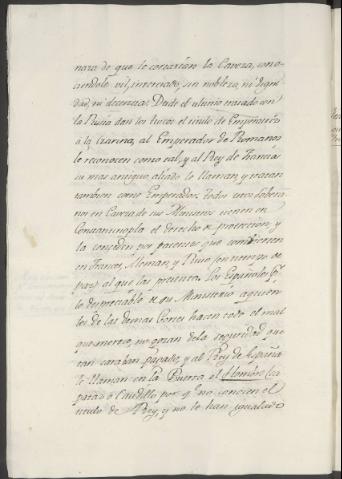 nara de que le cortarian la Caveza, con
viendole vil, interesado, sin nobleza, ni digni
dad, ni decencia. Desde el ultimo tratado con
la Rusia dan los turcos el titulo de Emperatriz
á la Czarina, al Emperador de Romanos
le reconocen como tal, y al Rey de Francia
su mas antiguo aliado le llaman, y tratan
tambien como Emperador. todos estos sobera
nos en Caveza de sus Ministros tienen en
Constantinopla el derecho de proteccion, y
la conceden por patentes que
en Frances, Aleman, y Ruso (en tiempo de
paz) al que las presenta. los Españoles
lo despreciable de su Ministerio a quien
los de las demas Cortes hacen todo el mal
que merece, no gozan de la seguridad que
tan cara han pagado, y al Rey de España
le llaman en la Puerta el Hombre
Caudillo por q.e no conocen el
titulo de Rey, y no le han igualado